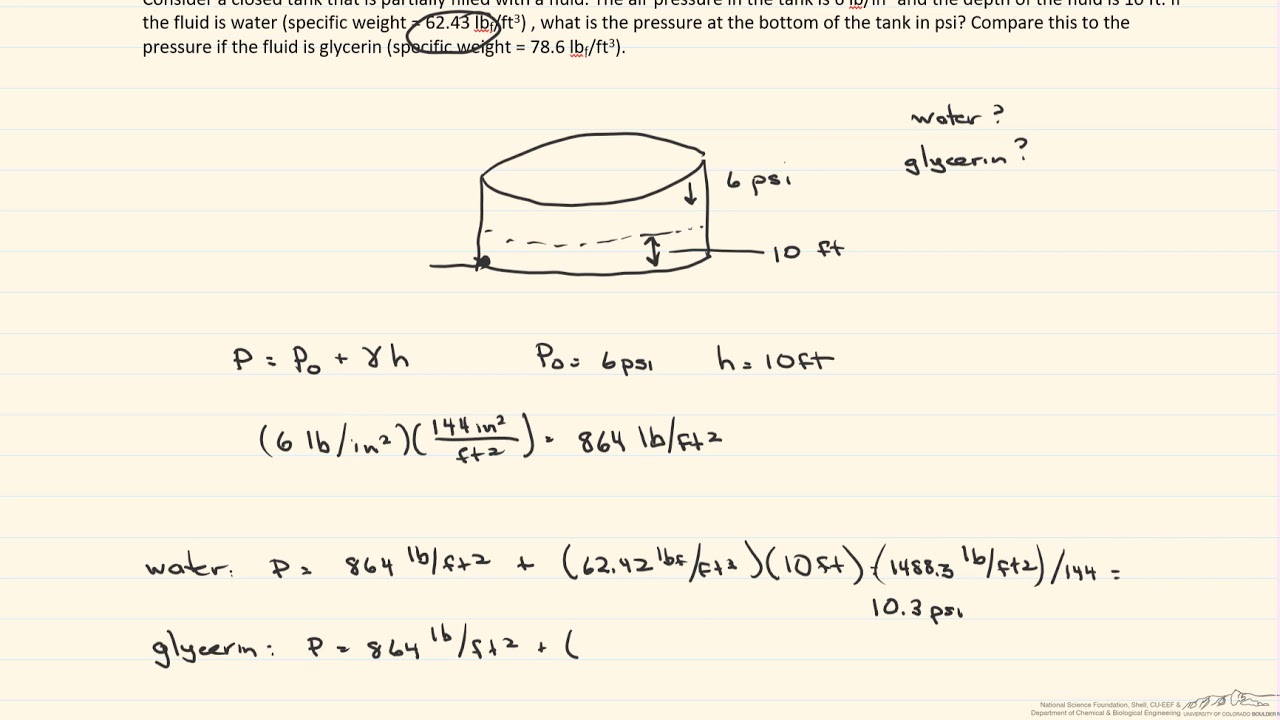 Consider a closed tank that is partially filled with a fluid. The air pressure in the tank is 6 lb/in² and the depth of the fluid is 10 ft. If
the fluid is water (specific weight = 62.43 lbf/ft³) , what is the pressure at the bottom of the tank in psi? Compare this to the
pressure if the fluid is glycerin (specific weight = 78.6 lbf/ft³).
water ?
glycerin ?
6 psi
10 ft
P = P₀ + γh P₀ = 6 psi h = 10 ft
(6 lb/in²)(144 in²/ft²) = 864 lb/ft²
water: P = 864 lb/ft² + (62.42 lbf/ft³)(10 ft) = (1488.3 lb/ft²)/144 =
10.3 psi
glycerin: P = 864 lb/ft² + (
National Science Foundation, Shell, CU-EEF &
Department of Chemical & Biological Engineering UNIVERSITY OF COLORADO BOULDER